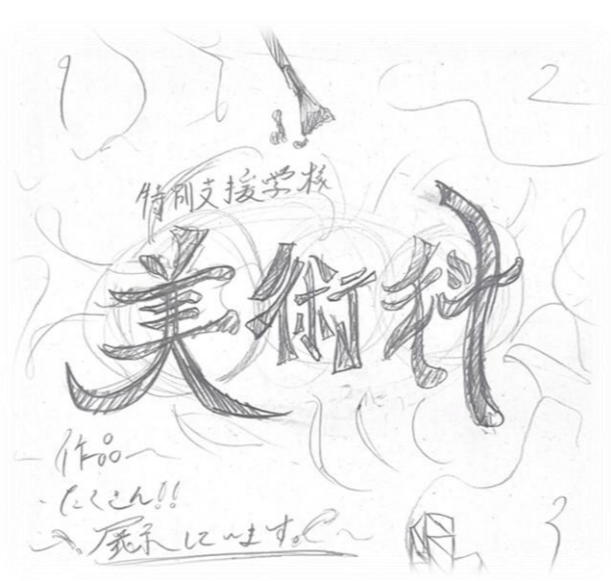 特別支援学校
美術科
作品
たくさん!!
展示しています。